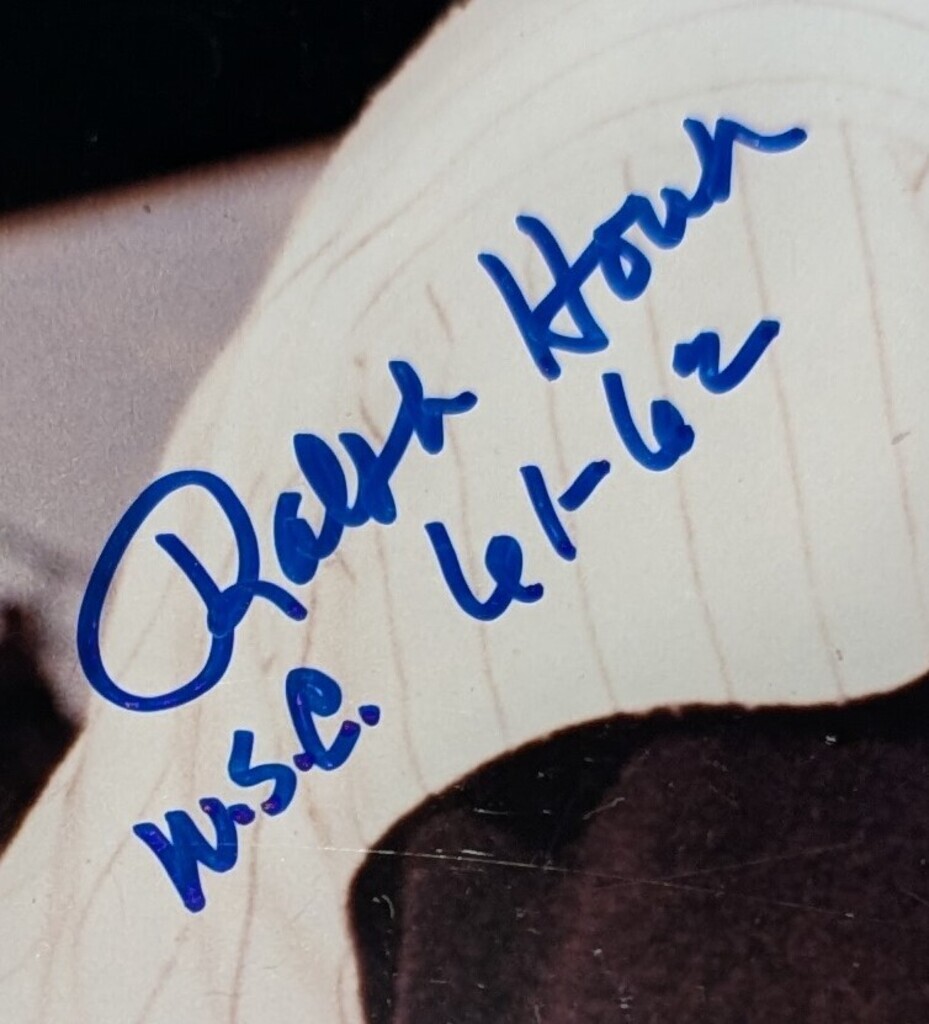 Ralph Houk
W.S.C. 61-62